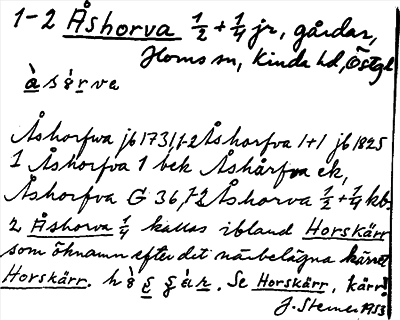 1-2 Åshorva 1/2 + 1/4 jr, gårdar,
Horns sn, Kinda hd, Östgl
Åshorfva jb 1731, 1-2 Åshorfva 1+1 jb 1825
1 Åshorfva 1 bek Åshårfva ek,
Åshorfva G 36, 1-2 Åshorva 1/2 + 1/4 kb.
2 Åshorva 1/4 kallas ibland Horskärr
som öknamn efter det närbelägna kärret
Horskärr. Se Horskärr, kärr!
J. Stener 1953